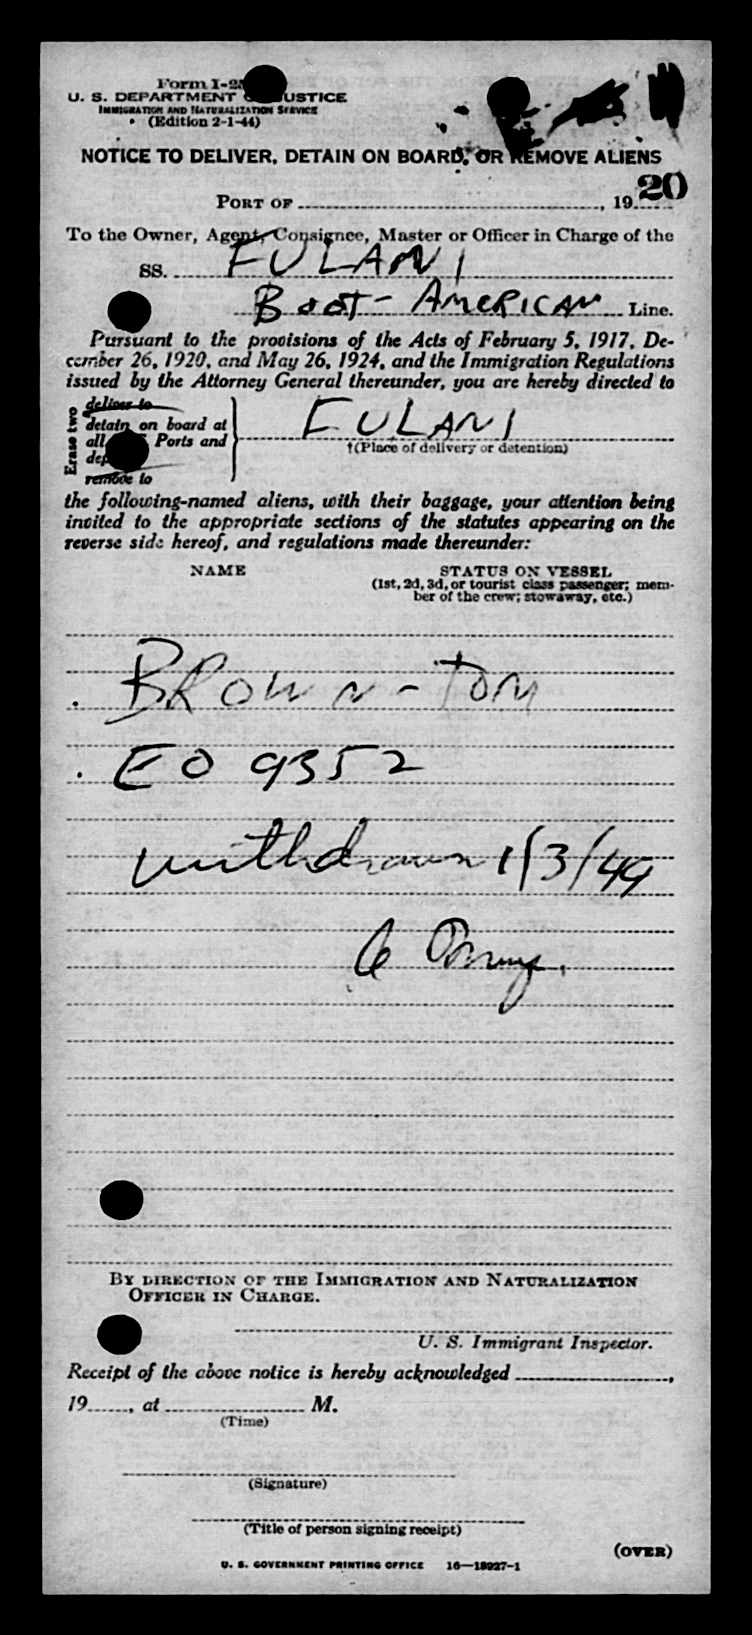 Form I-2
U. S. DEPARTMENT OF JUSTICE
IMMIGRATION AND NATURALIZATION SERVICE
(Edition 2-1-44)
NOTICE TO DELIVER, DETAIN ON BOARD, OR REMOVE ALIENS
20
PORT OF ________, 19____
To the Owner, Agent, Consignee, Master or Officer in Charge of the
SS. FULANI
Boot-American Line.
Pursuant to the provisions of the Acts of February 5, 1917, De-
cember 26, 1920, and May 26, 1924, and the Immigration Regulations
issued by the Attorney General thereunder, you are hereby directed to
Erase two
deliver to
detain on board at
all Ports and
remove to
FULANI
†(Place of delivery or detention)
the following-named aliens, with their baggage, your attention being
invited to the appropriate sections of the statutes appearing on the
reverse side hereof, and regulations made thereunder:
NAME STATUS ON VESSEL
(1st, 2d, 3d, or tourist class passenger; mem-
ber of the crew; stowaway, etc.)
BROWN - TOM
EO 9352
withdrawn 1/3/49
BY DIRECTION OF THE IMMIGRATION AND NATURALIZATION
OFFICER IN CHARGE.
U. S. Immigrant Inspector.
Receipt of the above notice is hereby acknowledged ________,
19____, at ________ M.
(Time)
(Signature)
(Title of person signing receipt)
(OVER)
U. S. GOVERNMENT PRINTING OFFICE 16—18927-1